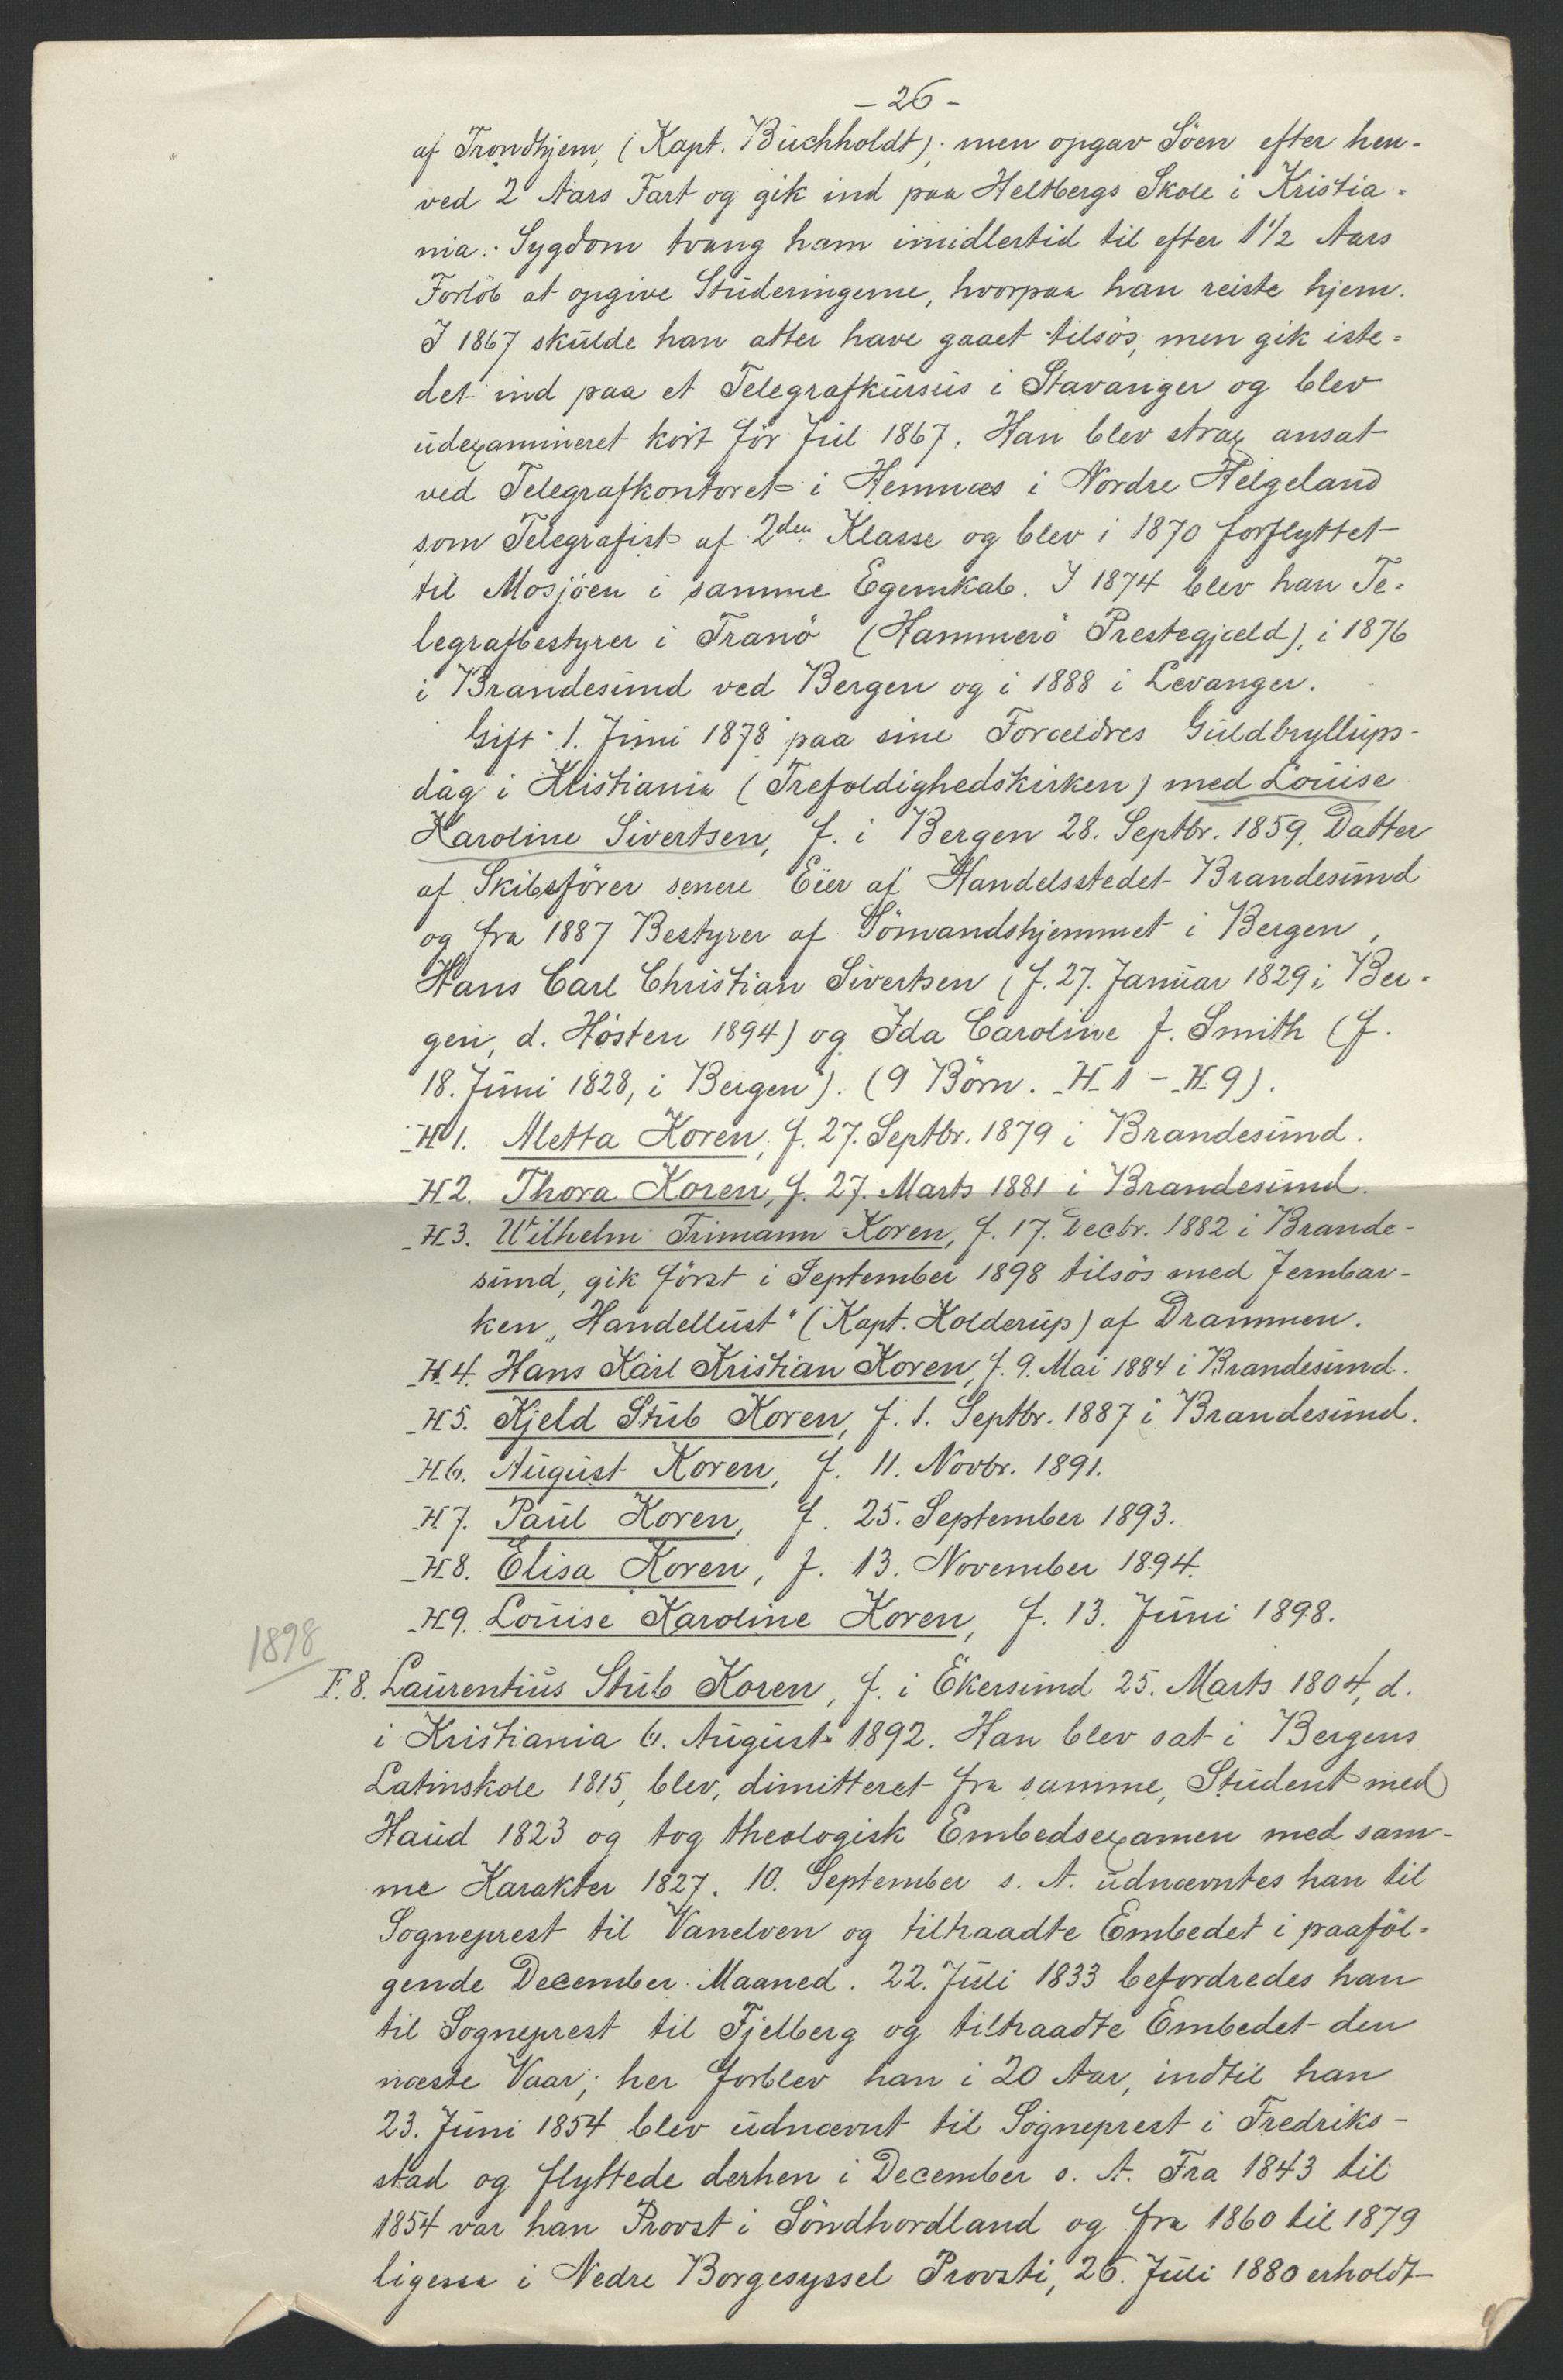 - 26 -
af Trondhjem, (Kapt. Buchholdt); men opgav Söen efter hen-
ved 2 Aars Fart og gik ind paa Heltbergs Skole i Kristia-
nia. Sygdom tvang ham imidlertid til efter 1 1/2 Aars
Forløb at opgive Studeringerne, hvorpaa han reiste hjem.
I 1867 skulde han atter have gaaet tilsös, men gik iste-
det ind paa et Telegrafkursus i Stavanger og blev
udexamineret kort för Jul 1867. Han blev strax ansat
ved Telegrafkontoret i Hemnæs i Nordre Helgeland
som Telegrafist af 2den Klasse og blev i 1870 forflyttet
til Mosjöen i samme Egenskab. I 1874 blev han Te-
legrafbestyrer i Tranö (Hammerö Prestegjæld), i 1876
i Brandesund ved Bergen og i 1888 i Levanger.
Gift 1. Juni 1878 paa sine Forældres Guldbryllups-
dag i Kristiania (Trefoldighedskirken) med Louise
Karoline Sivertsen, f. i Bergen 28. Septbr. 1859. Datter
af Skibsförer senere Eier af Handelsstedet Brandesund
og fra 1887 Bestyrer af Sömandshjemmet i Bergen,
Hans Carl Christian Sivertsen (f. 27. Januar 1829 i Ber-
gen, d. Hösten 1894) og Ida Caroline f. Smith (f.
18. Juni 1828, i Bergen). (9 Börn. H 1 - H 9).
H 1. Aletta Koren, f. 27. Septbr. 1879 i Brandesund.
H 2. Thora Koren, f. 27. Marts 1881 i Brandesund.
H 3. Wilhelm Frimann Koren, f. 17. Decbr. 1882 i Brande-
sund, gik först i September 1898 tilsös med Jernbar-
ken „Handellust" (Kapt. Holderup) af Drammen.
H 4. Hans Karl Kristian Koren, f. 9. Mai 1884 i Brandesund.
H 5. Kjeld Stub Koren, f. 1. Septbr. 1887 i Brandesund.
H 6. August Koren, f. 11. Novbr. 1891.
H 7. Paul Koren, f. 25. September 1893.
H 8. Elisa Koren, f. 13. November 1894.
H 9. Louise Karoline Koren, f. 13. Juni 1898.
1898
F. 8. Laurentius Stub Koren, f. i Ekersund 25. Marts 1804, d.
i Kristiania 6. August 1892. Han blev sat i Bergens
Latinskole 1815, blev, dimitteret fra samme, Student med
Haud 1823 og tog theologisk Embedsexamen med sam-
me Karakter 1827. 10. September s. A. udnævntes han til
Sogneprest til Vanelven og tiltraadte Embedet i paaföl-
gende December Maaned. 22. Juli 1833 befordredes han
til Sogneprest til Fjelberg og tiltraadte Embedet den
næste Vaar; her forblev han i 20 Aar, indtil han
23. Juni 1854 blev udnævnt til Sogneprest i Fredriks-
stad og flyttede derhen i December s. A. Fra 1843 til
1854 var han Provst i Söndhordland og fra 1860 til 1879
ligesaa i Nedre Borgesyssel Provsti, 26. Juli 1880 erholdt